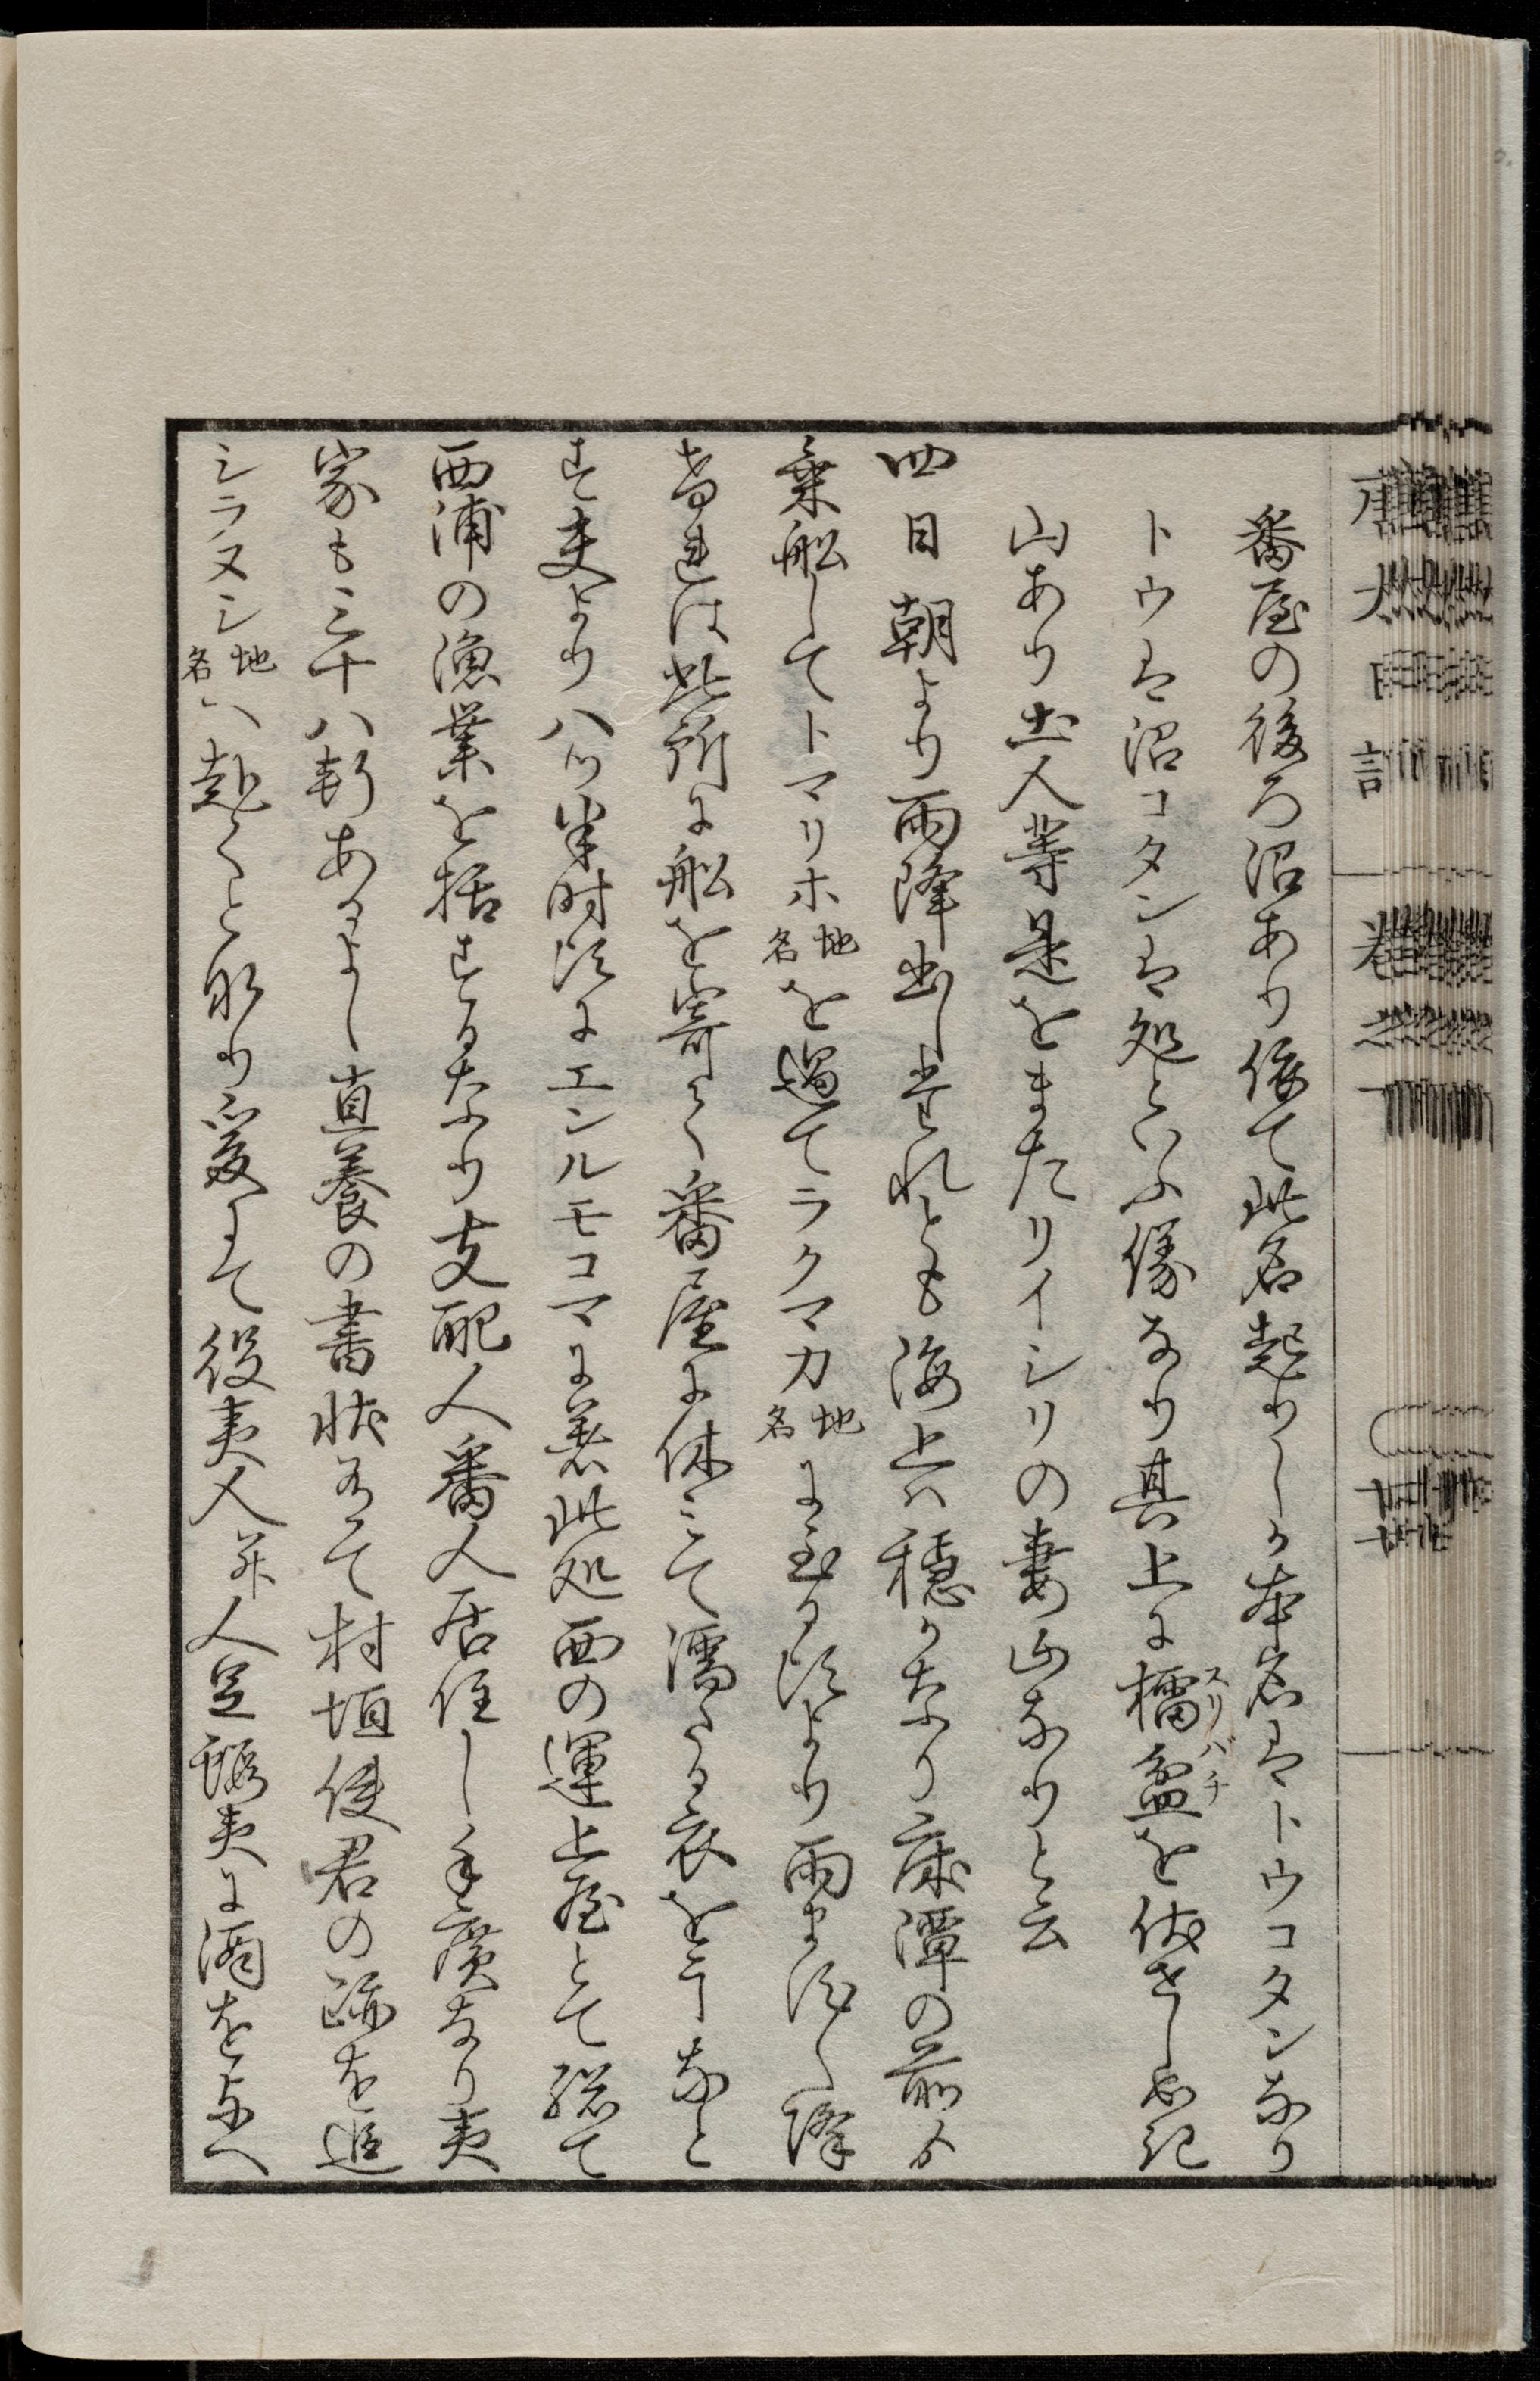 番屋の後ろ沼あり依て此名起りしか本名はトウコタンなり
トウは沼コタンは処といふ儀なり其上に擂盆を伏せし如き
スリバチ
山あり土人等是をまたリイシリの妻山なりと云
四日朝より雨降出し遣れとも海上は穏かなり麻潭の前より
乗船してトマリホ地名を過てラクマカ地名に至る頃より雨ま須〱降
希連は此所に船を寄て番屋に休ミて濡たる衣を干なと
す夫より八ツ半時頃にエンルモコマに着此処西の運上屋とて総て
西浦の漁業を括するなり支配人番人居住し手廣なり夷
家も三十八軒あるよし直養の書状有て村垣使君の跡を追
シラヌシ地名へ赴くと那り爰にて役夷人并人足蝦夷に酒を与へ